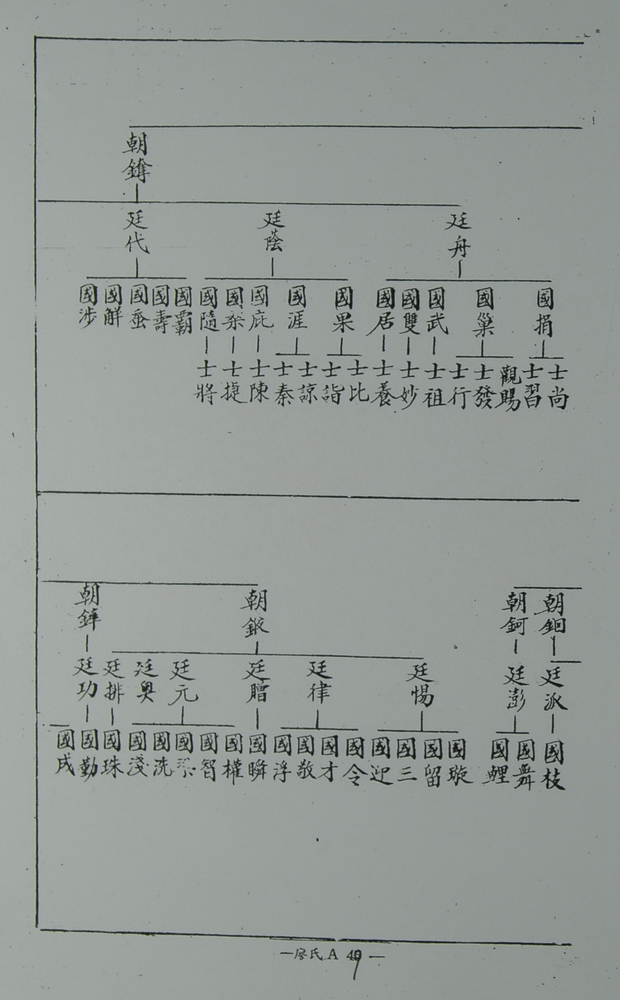 朝鑄
廷舟
廷蔭
廷代
國捐
國巢
國武
國雙
國居
國果
國涯
國庇
國隨
國霸
國壽
國蚕
國解
國涉
士尚
士習
觀賜
士發
士行
士祖
士妙
士養
士比
士詣
士諒
士秦
士陳
士捷
士將
朝鈿
朝鈳
朝鏾
朝鏵
廷派
廷澎
廷惕
廷律
廷贈
廷元
廷奧
廷排
廷功
國枝
國舞
國鯉
國璇
國留
國三
國迎
國令
國才
國敬
國浮
國瞬
國權
國智
國洗
國淺
國珠
國勤
國戌
—廖氏 A 49—